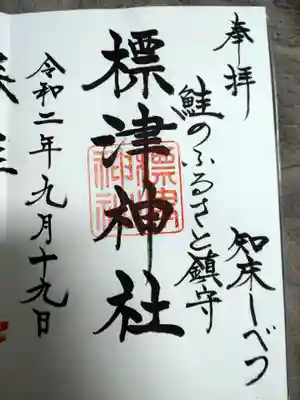 奉拝
知床しべつ
鮭のふるさと鎮守
標津神社
令和二年九月十九日